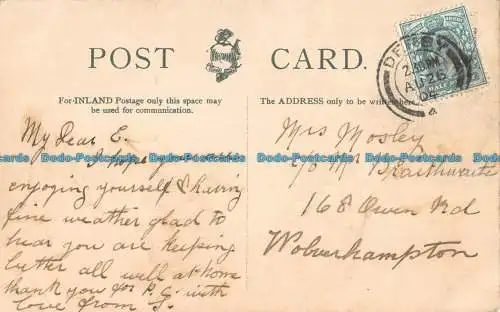 POST CARD.
For INLAND Postage only this space may
be used for communication.
The ADDRESS only to be written here.
DERBY
AU 26
04
My Dear E.
I hope you are
enjoying yourself & having
fine weather glad to
hear you are keeping
better all well at home
thank you for P.C. with
love from S.
Mrs Mosley
c/o Mr Braithwaite
168 Owen Rd
Wolverhampton
Dodo-Postcards Dodo-Postcards Dodo-Postcards Dodo-Postcards Dodo-Postcards